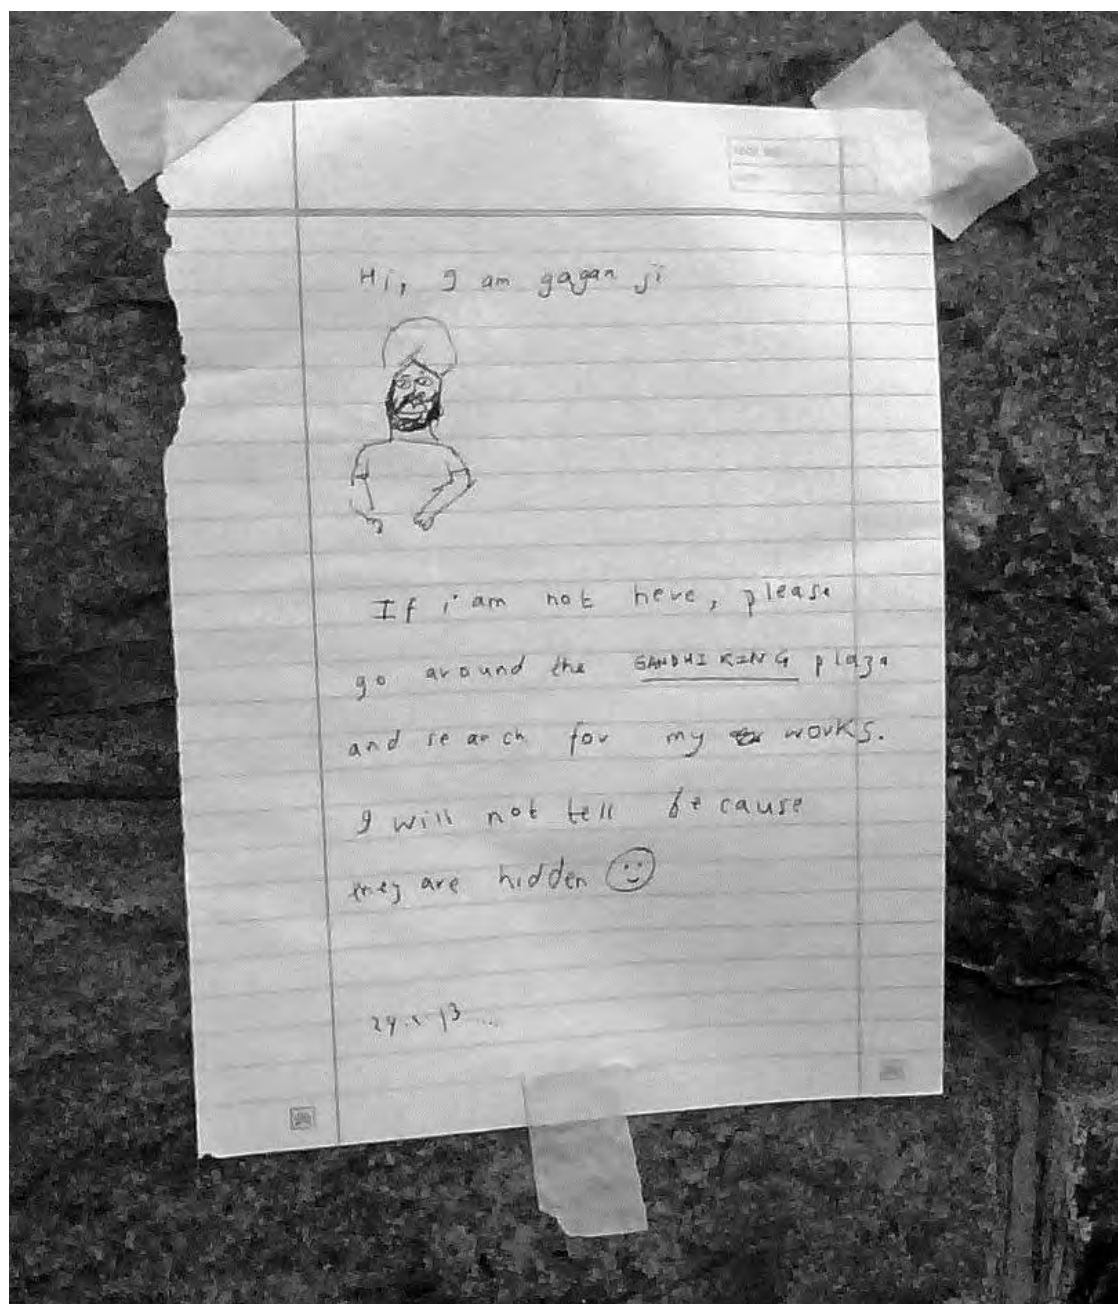 Hi, I am gagan ji
If i am not here, please
go around the GANDHI KING plaza
and search for my works.
I will not tell because
they are hidden